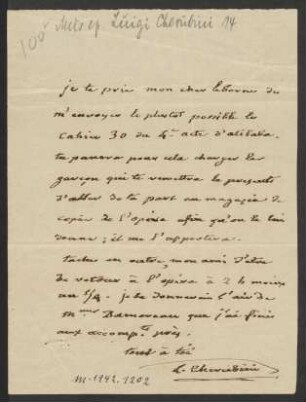 100
Meis op. Luigi Cherubini 14.
je te prie mon cher Leborne de
m'envoyer le plustot possible le
Cahier 30 du 4e acte d'alibaba.
tu pourra pour cela charger le
garçon qui te remettra la presente
d'aller de ta part au magazin de
copie de l'opéra afin qu'on le lui
donne; il me l'apportera.
tache en outre, mon ami d'etre
de retour à l'opéra à 2 h moins
un 1/4. je te donnerai l'air de
Mme Damoreau que j'ai finis
aux accompts près.
tout à toi
L. Cherubini
M. 1942.1202